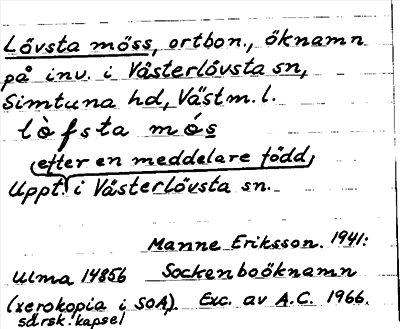 Lövsta möss, ortbon., öknamn
på inv. i Västerlövsta sn,
Simtuna hd, Västm. l.
lòfsta mós
(efter en meddelare född,
Uppt. i Västerlövsta sn.
Manne Eriksson. 1941:
Ulma 14856 Sockenboöknamn
(xerokopia i SOA). Exc. av A.C. 1966.
särsk. kapsel